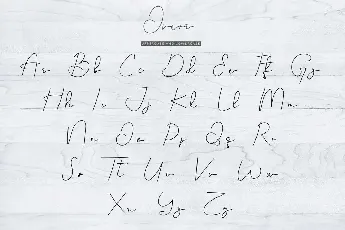 UPPERCASE AND LOWERCASE
Aa Bb Cc Dd Ee Ff Gg
Hh Ii Jj Kk Ll Mm
Nn Oo Pp Qq Rr
Ss Tt Uu Vv Ww
Xx Yy Zz